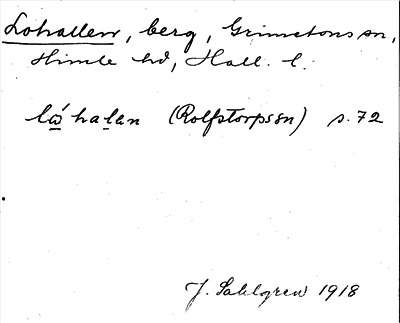 Lohallen, berg, Grimetons sn,
Himle hd, Hall. l.
lώhalan (Rolfstorpssn) s. 72
J. Sahlgren 1918